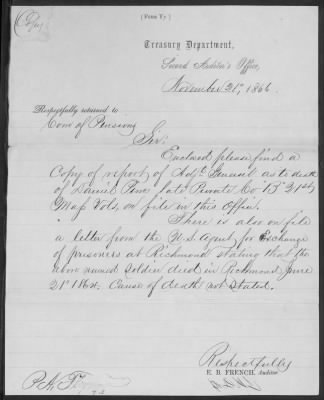 [Form V]
Treasury Department,
Second Auditor's Office,
November 21st, 1866
Respectfully returned to
Com of Pensions
Sir:
Enclosed please find a
Copy of report of Adjt. General as to death
of Daniel late Private Co 21st
Mass Vols, on file in this Office.
There is also on file
a letter from the U.S. Agent for Exchange
of prisoners at Richmond stating that the
above named soldier died in Richmond June
21st 1864. Cause of death not stated.
Respectfully
E. B. FRENCH, Auditor